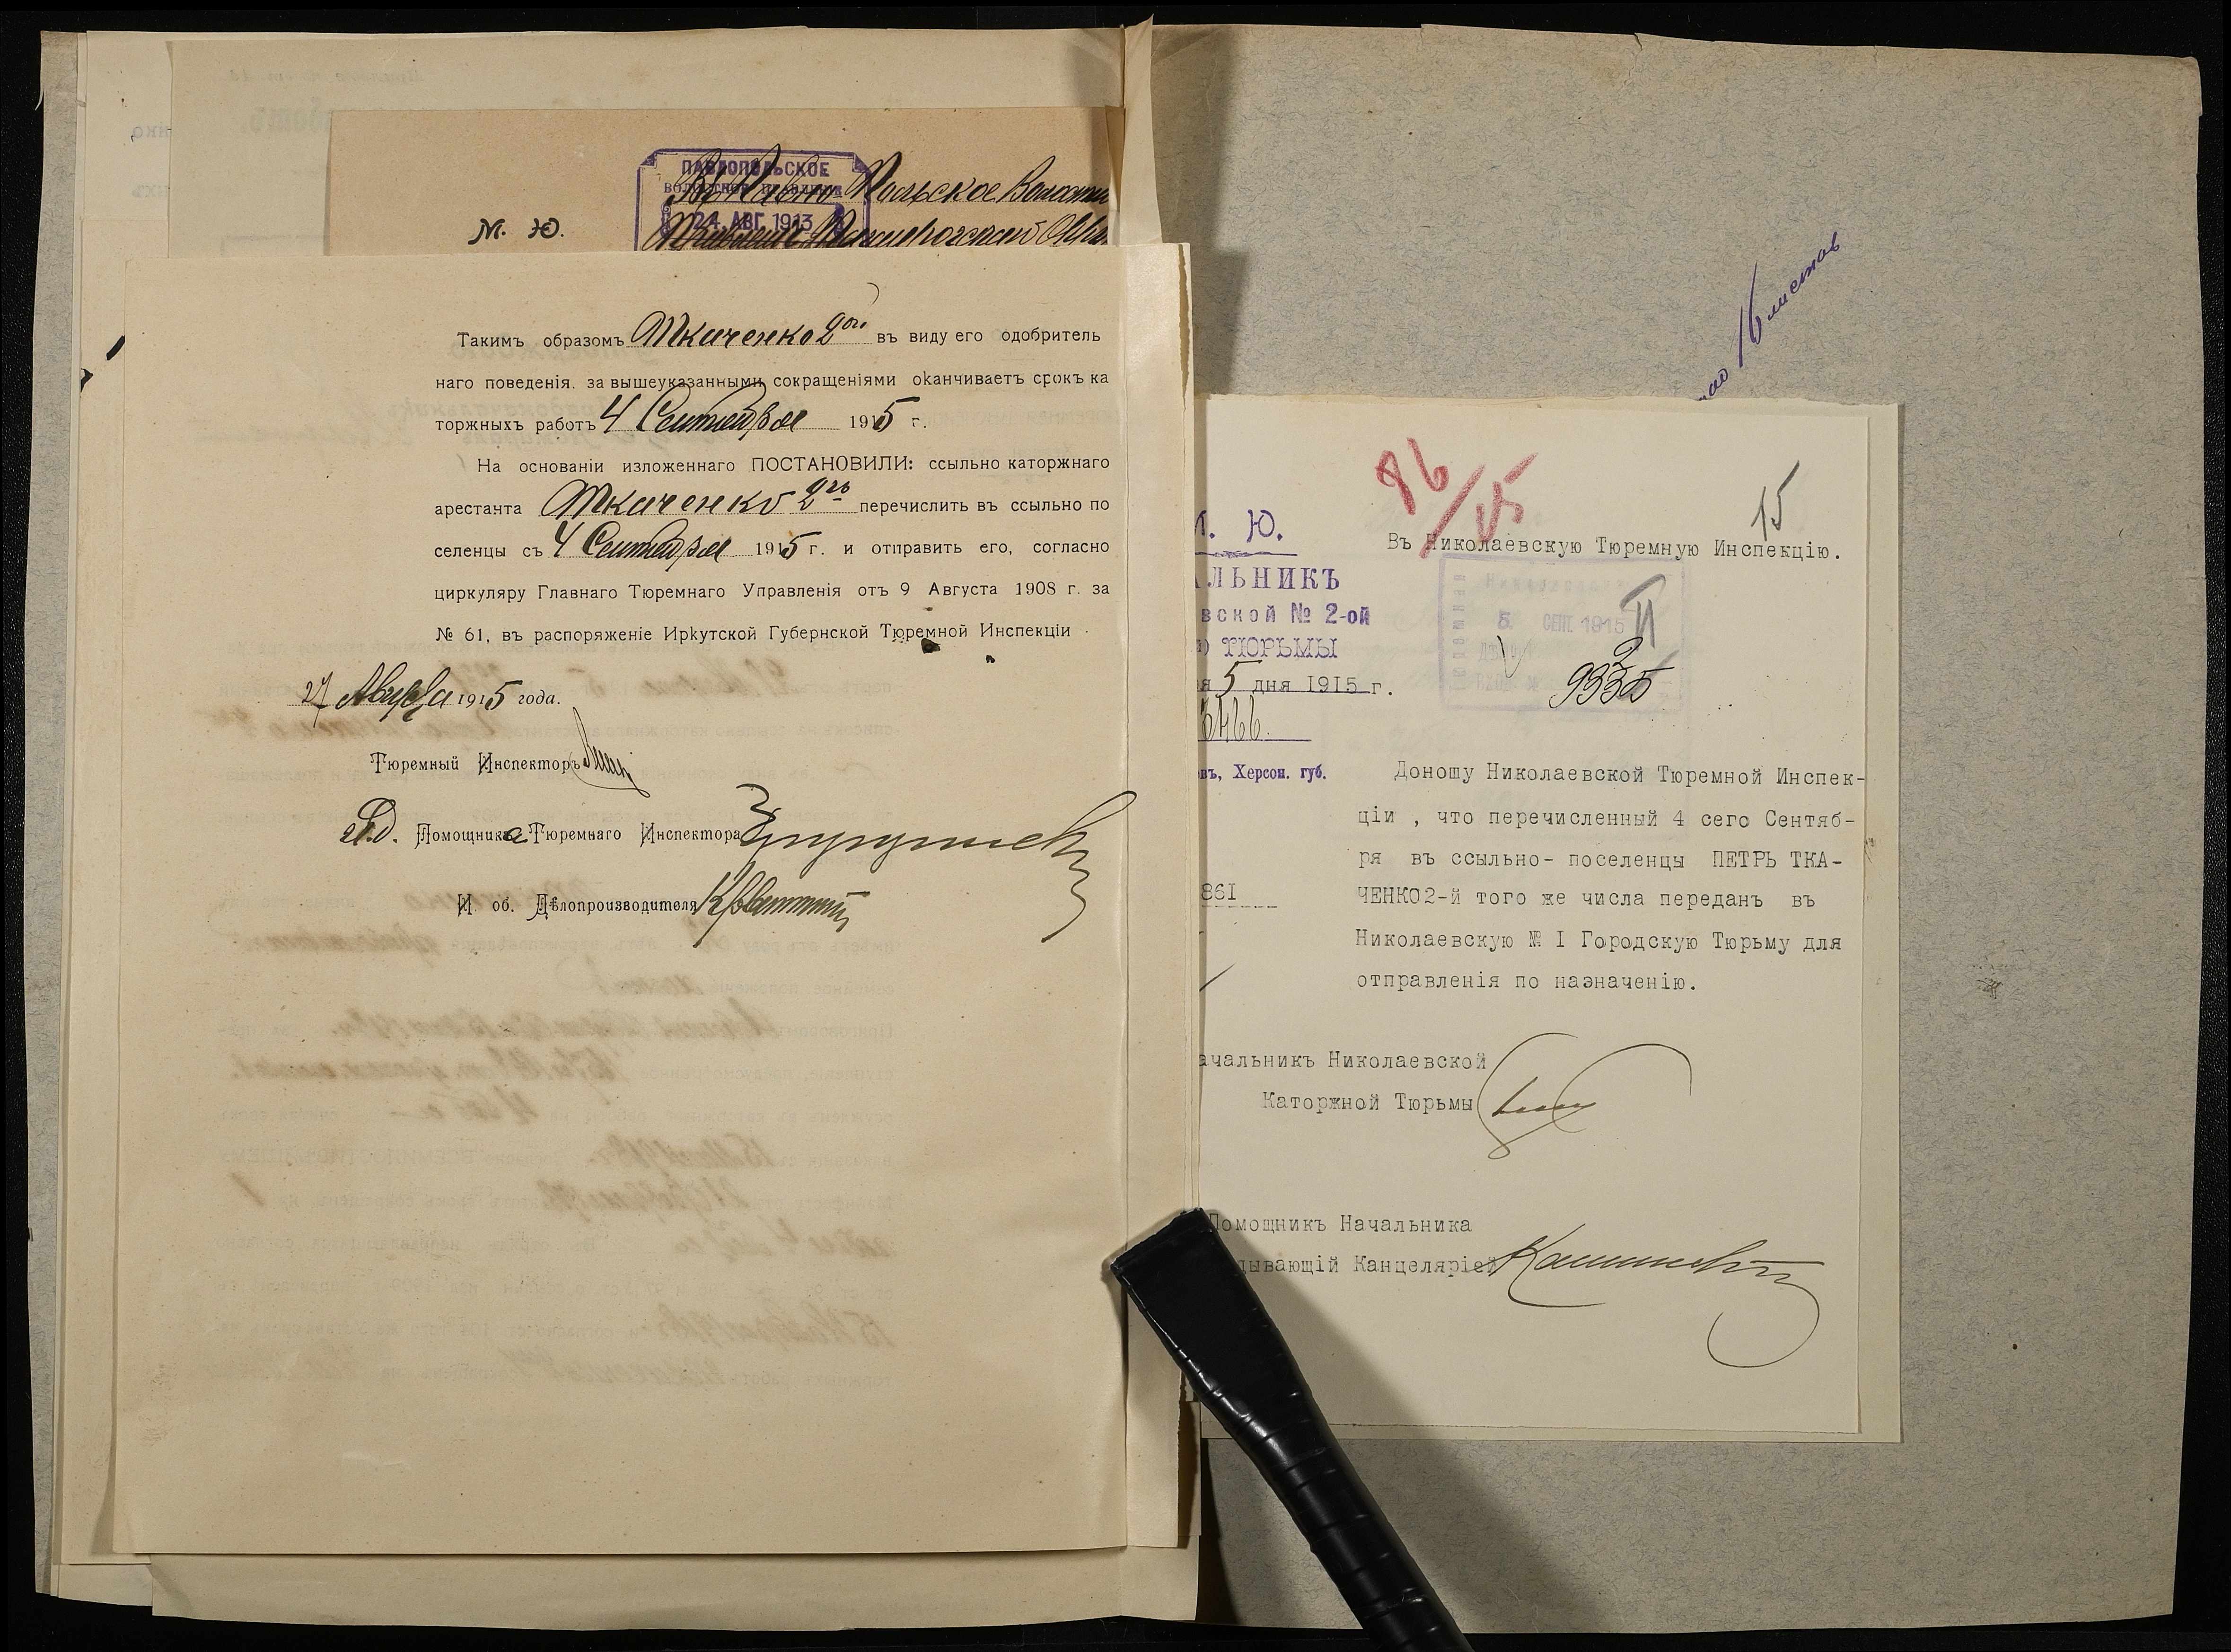 М. Ю.
ПАВЛОПОЛЬСКОЕ
ВОЛОСТНОЕ ПРАВЛЕНІЕ
24 АВГ 1913
Въ Павло-Польское Волостн
Правленіе, Таганрогскаго Окр
Такимъ образомъ Ткаченко 2ой въ виду его одобритель
наго поведенія, за вышеуказанными сокращеніями оканчиваетъ срокъ ка
торжныхъ работъ 4 Сентября 1915 г.
На основаніи изложеннаго ПОСТАНОВИЛИ: ссыльно каторжнаго
арестанта Ткаченко 2го перечислить въ ссыльно по
селенцы съ 4 Сентября 1915 г. и отправить его, согласно
циркуляру Главнаго Тюремнаго Управленія отъ 9 Августа 1908 г. за
№ 61, въ распоряженіе Иркутской Губернской Тюремной Инспекціи
27 Августа 1915 года.
Тюремный Инспекторъ
И.д. Помощника Тюремнаго Инспектора
И. об. Дѣлопроизводителя
листов
86/15
15
. Ю.
Въ Николаевскую Тюремную Инспекцію.
АЛЬНИКЪ
вской № 2-ой
ТЮРЬМЫ
5 СЕП. 1915
II
я 5 дня 1915 г.
9335
5466.
въ, Херсон. губ.
Доношу Николаевской Тюремной Инспек-
ціи , что перечисленный 4 сего Сентяб-
ря въ ссыльно- поселенцы ПЕТРЪ ТКА-
861
ЧЕНКО2-й того же числа переданъ въ
Николаевскую № I Городскую Тюрьму для
отправленія по назначенію.
ачальникъ Николаевской
Каторжной Тюрьмы
Помощникъ Начальника
дывающій Канцеляріей